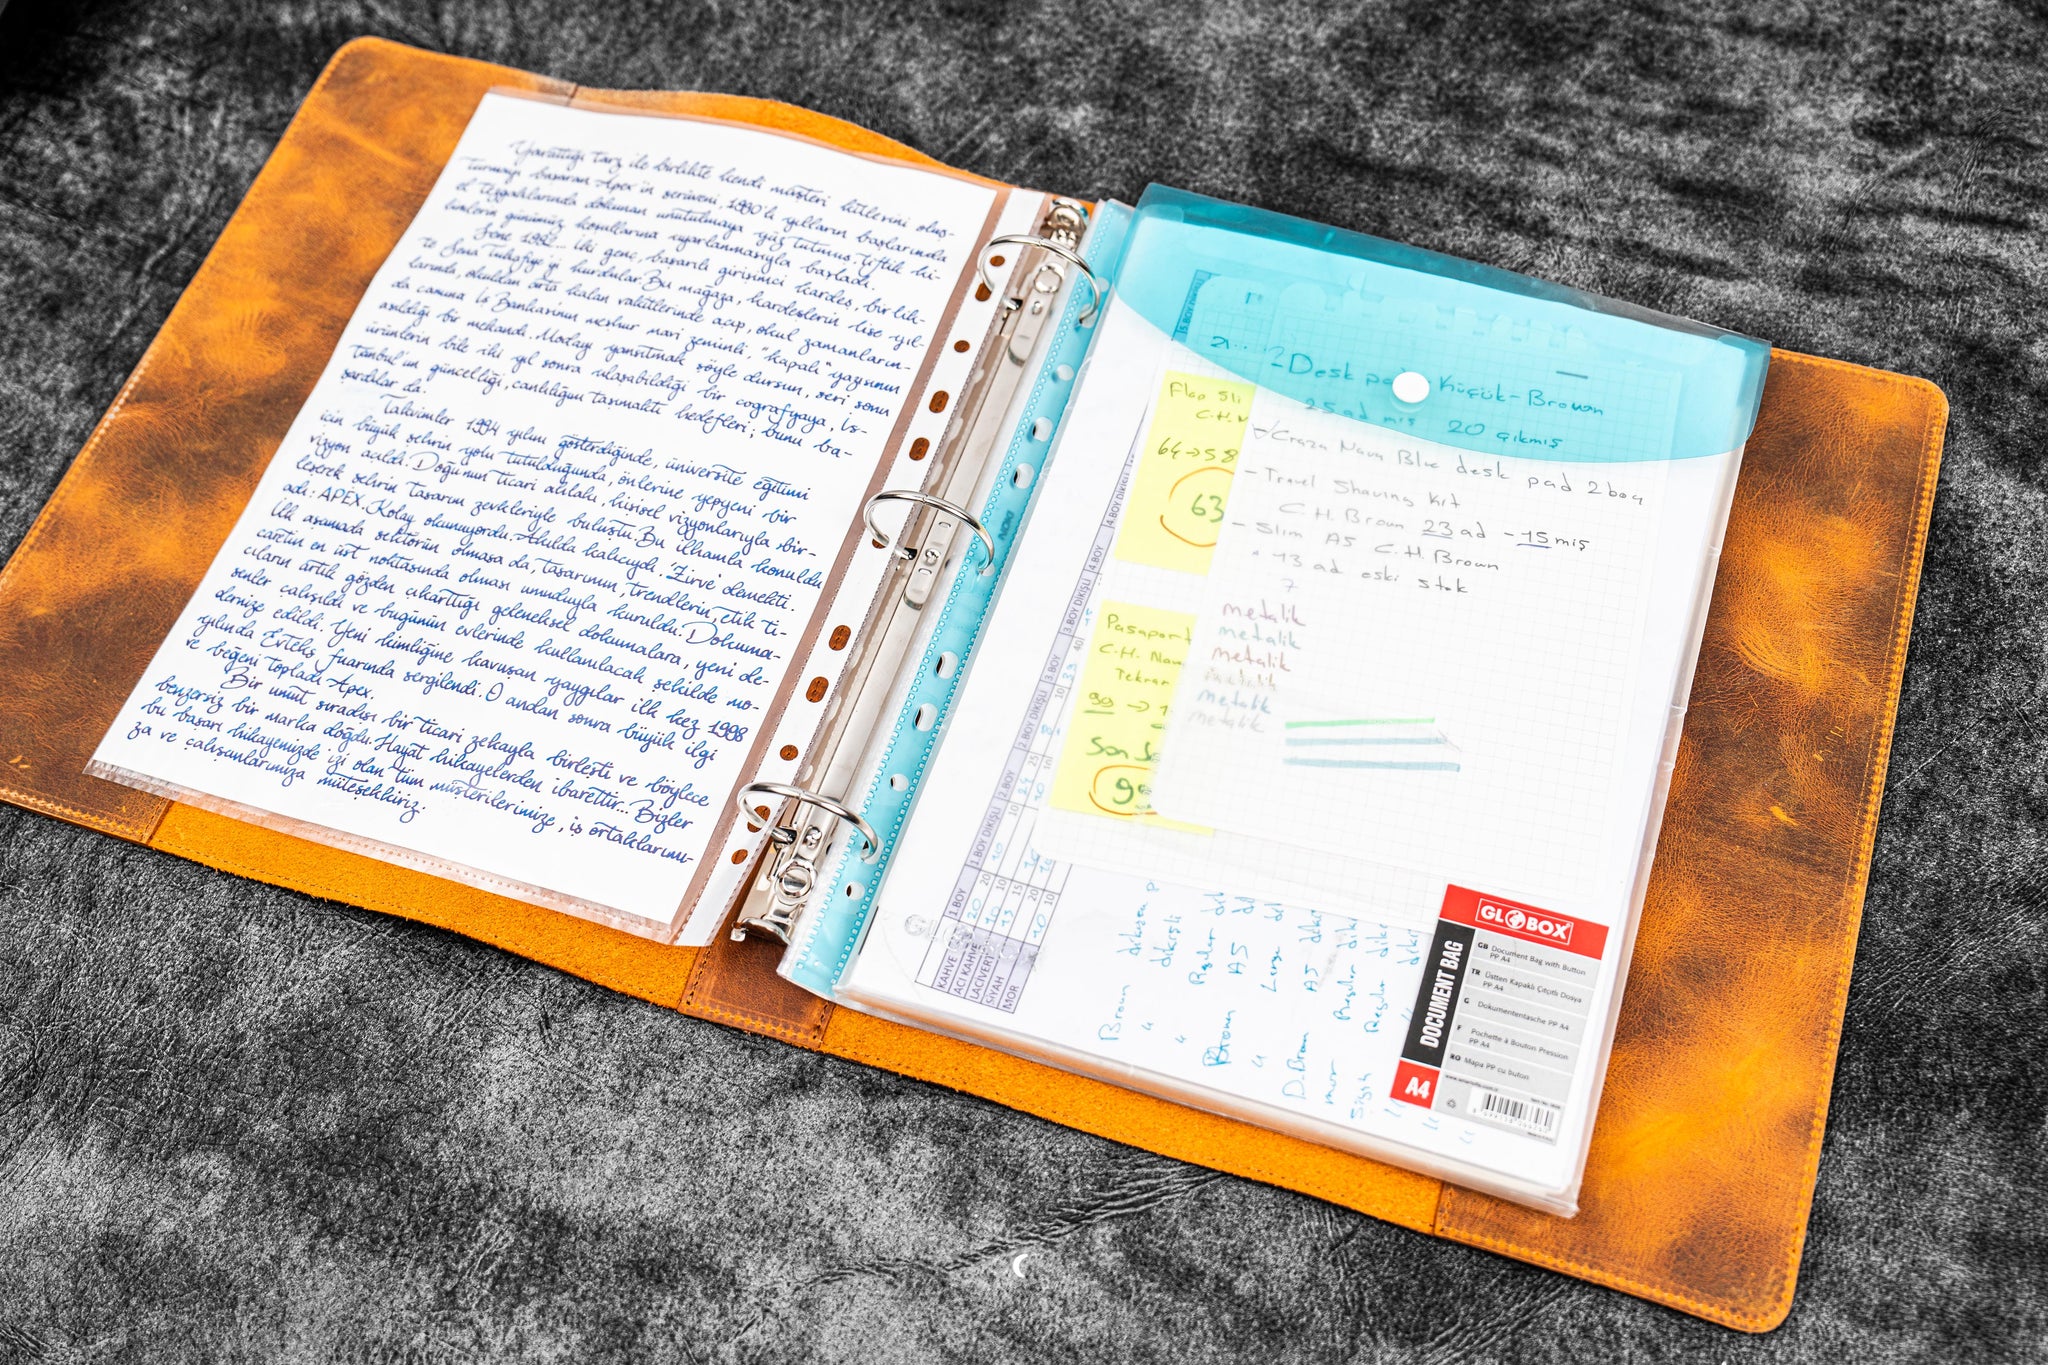 Yarattığı tarz ile birlikte kendi müşteri kitlerini oluş-
turmayı başaran Apex'in serüveni, 1990'lı yılların başlarında
el tezgahlarında dokunan unutulmaya yüz tutmuş tiftik ki-
limlerin günümüz koşullarına uyarlanmasıyla başladı.
Sene 1992... İki genç, başarılı girişimci kardeş, bir lik-
te Sena Tuhafiye'yi kurdular. Bu mağaza, kardeşlerin lise yıl-
larında, okuldan arta kalan vakitlerinde açıp, okul zamanların-
da camına İş Bankası'nın meşhur mavi zeminli, "kapalı" yazısının
asıldığı bir mekandı. Modayı yansıtmak şöyle dursun, seri sonu
ürünlerin bile iki yıl sonra ulaşabildiği bir coğrafyaya, İs-
tanbul'un güncelliği, canlılığını taşımaktı hedefleri; bunu ba-
şardılar da.
Takvimler 1994 yılını gösterdiğinde, üniversite eğitimi
için büyük şehrin yolu tutulduğunda, önlerine yepyeni bir
vizyon açıldı. Doğu'nun ticari ahlakı, kişisel vizyonlarıyla bir-
leşerek şehrin tasarım zevkleriyle buluştu. Bu ilhamla konuldu
adı: APEX. Kolay okunuyordu. Akılda kalıcıydı. 'Zirve' demekti.
İlk aşamada sektörün olmasa da, tasarımın, trendlerin, etik ti-
caretin en üst noktasında olması umuduyla kuruldu. Dokuma-
cıların artık gözden çıkarttığı geleneksel dokumalara, yeni de-
senler çalışıldı ve bugünün evlerinde kullanılacak şekilde mo-
dernize edildi. Yeni kimliğine kavuşan yaygılar ilk kez 1998
yılında Evteks fuarında sergilendi. O andan sonra büyük ilgi
ve beğeni topladı Apex.
Bir umut sıradışı bir ticari zekayla birleşti ve böylece
benzersiz bir marka doğdu. Hayat hikayelerden ibarettir... Bizler
bu başarı hikayemizde izi olan tüm müşterilerimize, iş ortaklarımı-
za ve çalışanlarımıza müteşekkiriz.
Desk Küçük-Brown
25 ad 20 çıkmış
Craza Nava Blue desk pad 2 boy
- Travel Shaving Kit
C.H. Brown 23 ad - 15 miş
- Slim A5 C.H. Brown
13 ad eski stok
7
metalik
metalik
metalik
metalik
metalik
metalik
Flap
C.H.
64→58
63
Pasaport
C.H. Nav
Tekrar
99 →
Son
1.BOY
1.BOY DİKİŞLİ
2.BOY
2.BOY DİKİŞLİ
3.BOY
3.BOY DİKİŞLİ
4.BOY
4.BOY DİKİŞLİ
KAHVE
ACI KAHVE
LACİVERT
SİYAH
MOR
Brown
dikişli
Regular
Brown A5
Large
D.Brown A5
mor Regular
Siyah Regular
GLOBOX
DOCUMENT BAG
A4
GB Document Bag with Button PP A4
TR Üstten Kapaklı Çıtçıtlı Dosya PP A4
G Dokumententasche PP A4
F Pochette à Bouton Pression PP A4
RO Mapa PP cu buton